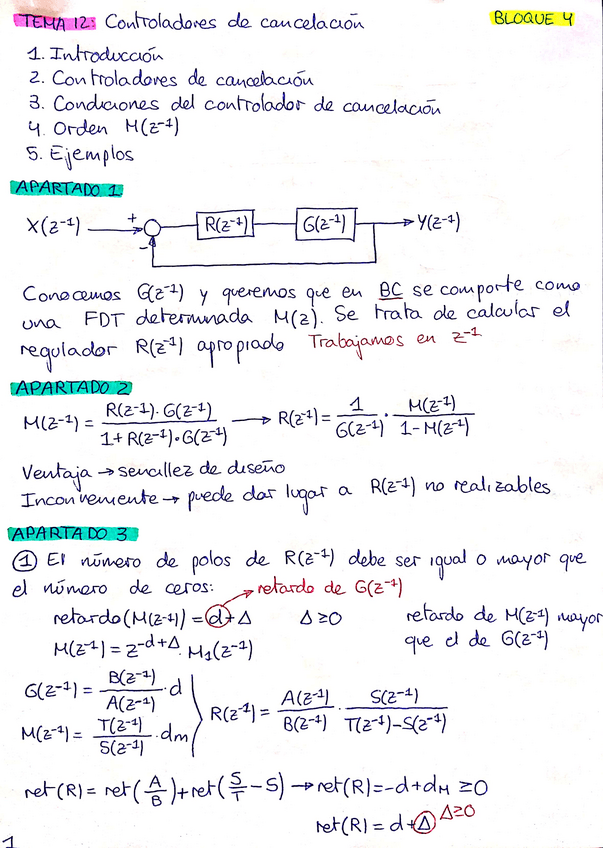 TEMA 12: Controladores de cancelación
BLOQUE 4
1. Introducción
2. Controladores de cancelación
3. Condiciones del controlador de cancelación
4. Orden M(z⁻¹)
5. Ejemplos
APARTADO 1
X(z⁻¹) + - R(z⁻¹) G(z⁻¹) Y(z⁻¹)
Conocemos G(z⁻¹) y queremos que en BC se comporte como
una FDT determinada M(z). Se trata de calcular el
regulador R(z⁻¹) apropiado Trabajamos en z⁻¹
APARTADO 2
M(z⁻¹) = R(z⁻¹)·G(z⁻¹) / 1+R(z⁻¹)·G(z⁻¹) → R(z⁻¹) = 1/G(z⁻¹) · M(z⁻¹)/1-M(z⁻¹)
Ventaja → sencillez de diseño
Inconveniente → puede dar lugar a R(z⁻¹) no realizables
APARTADO 3
① El número de polos de R(z⁻¹) debe ser igual o mayor que
el número de ceros: → retardo de G(z⁻¹)
retardo (M(z⁻¹)) = d+Δ Δ≥0 retardo de M(z⁻¹) mayor
M(z⁻¹) = z^-d+Δ · M₁(z⁻¹) que el de G(z⁻¹)
G(z⁻¹) = B(z⁻¹)/A(z⁻¹) · d
M(z⁻¹) = T(z⁻¹)/S(z⁻¹) · dm
R(z⁻¹) = A(z⁻¹)/B(z⁻¹) · S(z⁻¹)/T(z⁻¹)-S(z⁻¹)
ret(R) = ret(A/B) + ret(S/T - S) → ret(R) = -d+dM ≥0
ret(R) = d+Δ Δ≥0
1